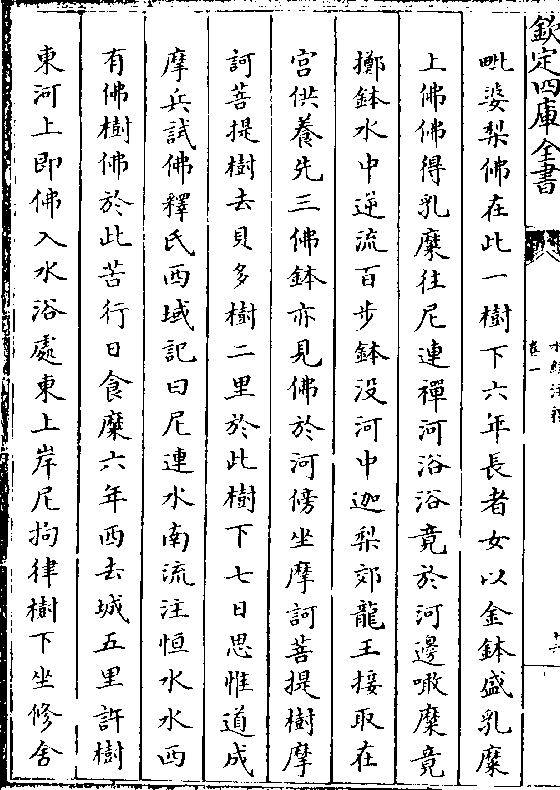 欽定四庫全書
卷一
毗婆梨佛在此一樹下六年長者女以金鉢盛乳糜
上佛佛得乳糜往尼連禪河浴浴竟於河邊噉糜竟
擲鉢水中逆流百步鉢没河中迦梨郊龍王接取在
宮供養先三佛鉢亦見佛於河傍坐摩訶菩提樹摩
訶菩提樹去貝多樹二里於此樹下七日思惟道成
摩兵試佛釋氏西域記曰尼連水南流注恒水水西
有佛樹佛於此苦行日食糜六年西去城五里許樹
東河上即佛入水浴處東上岸尼拘律樹下坐修舍